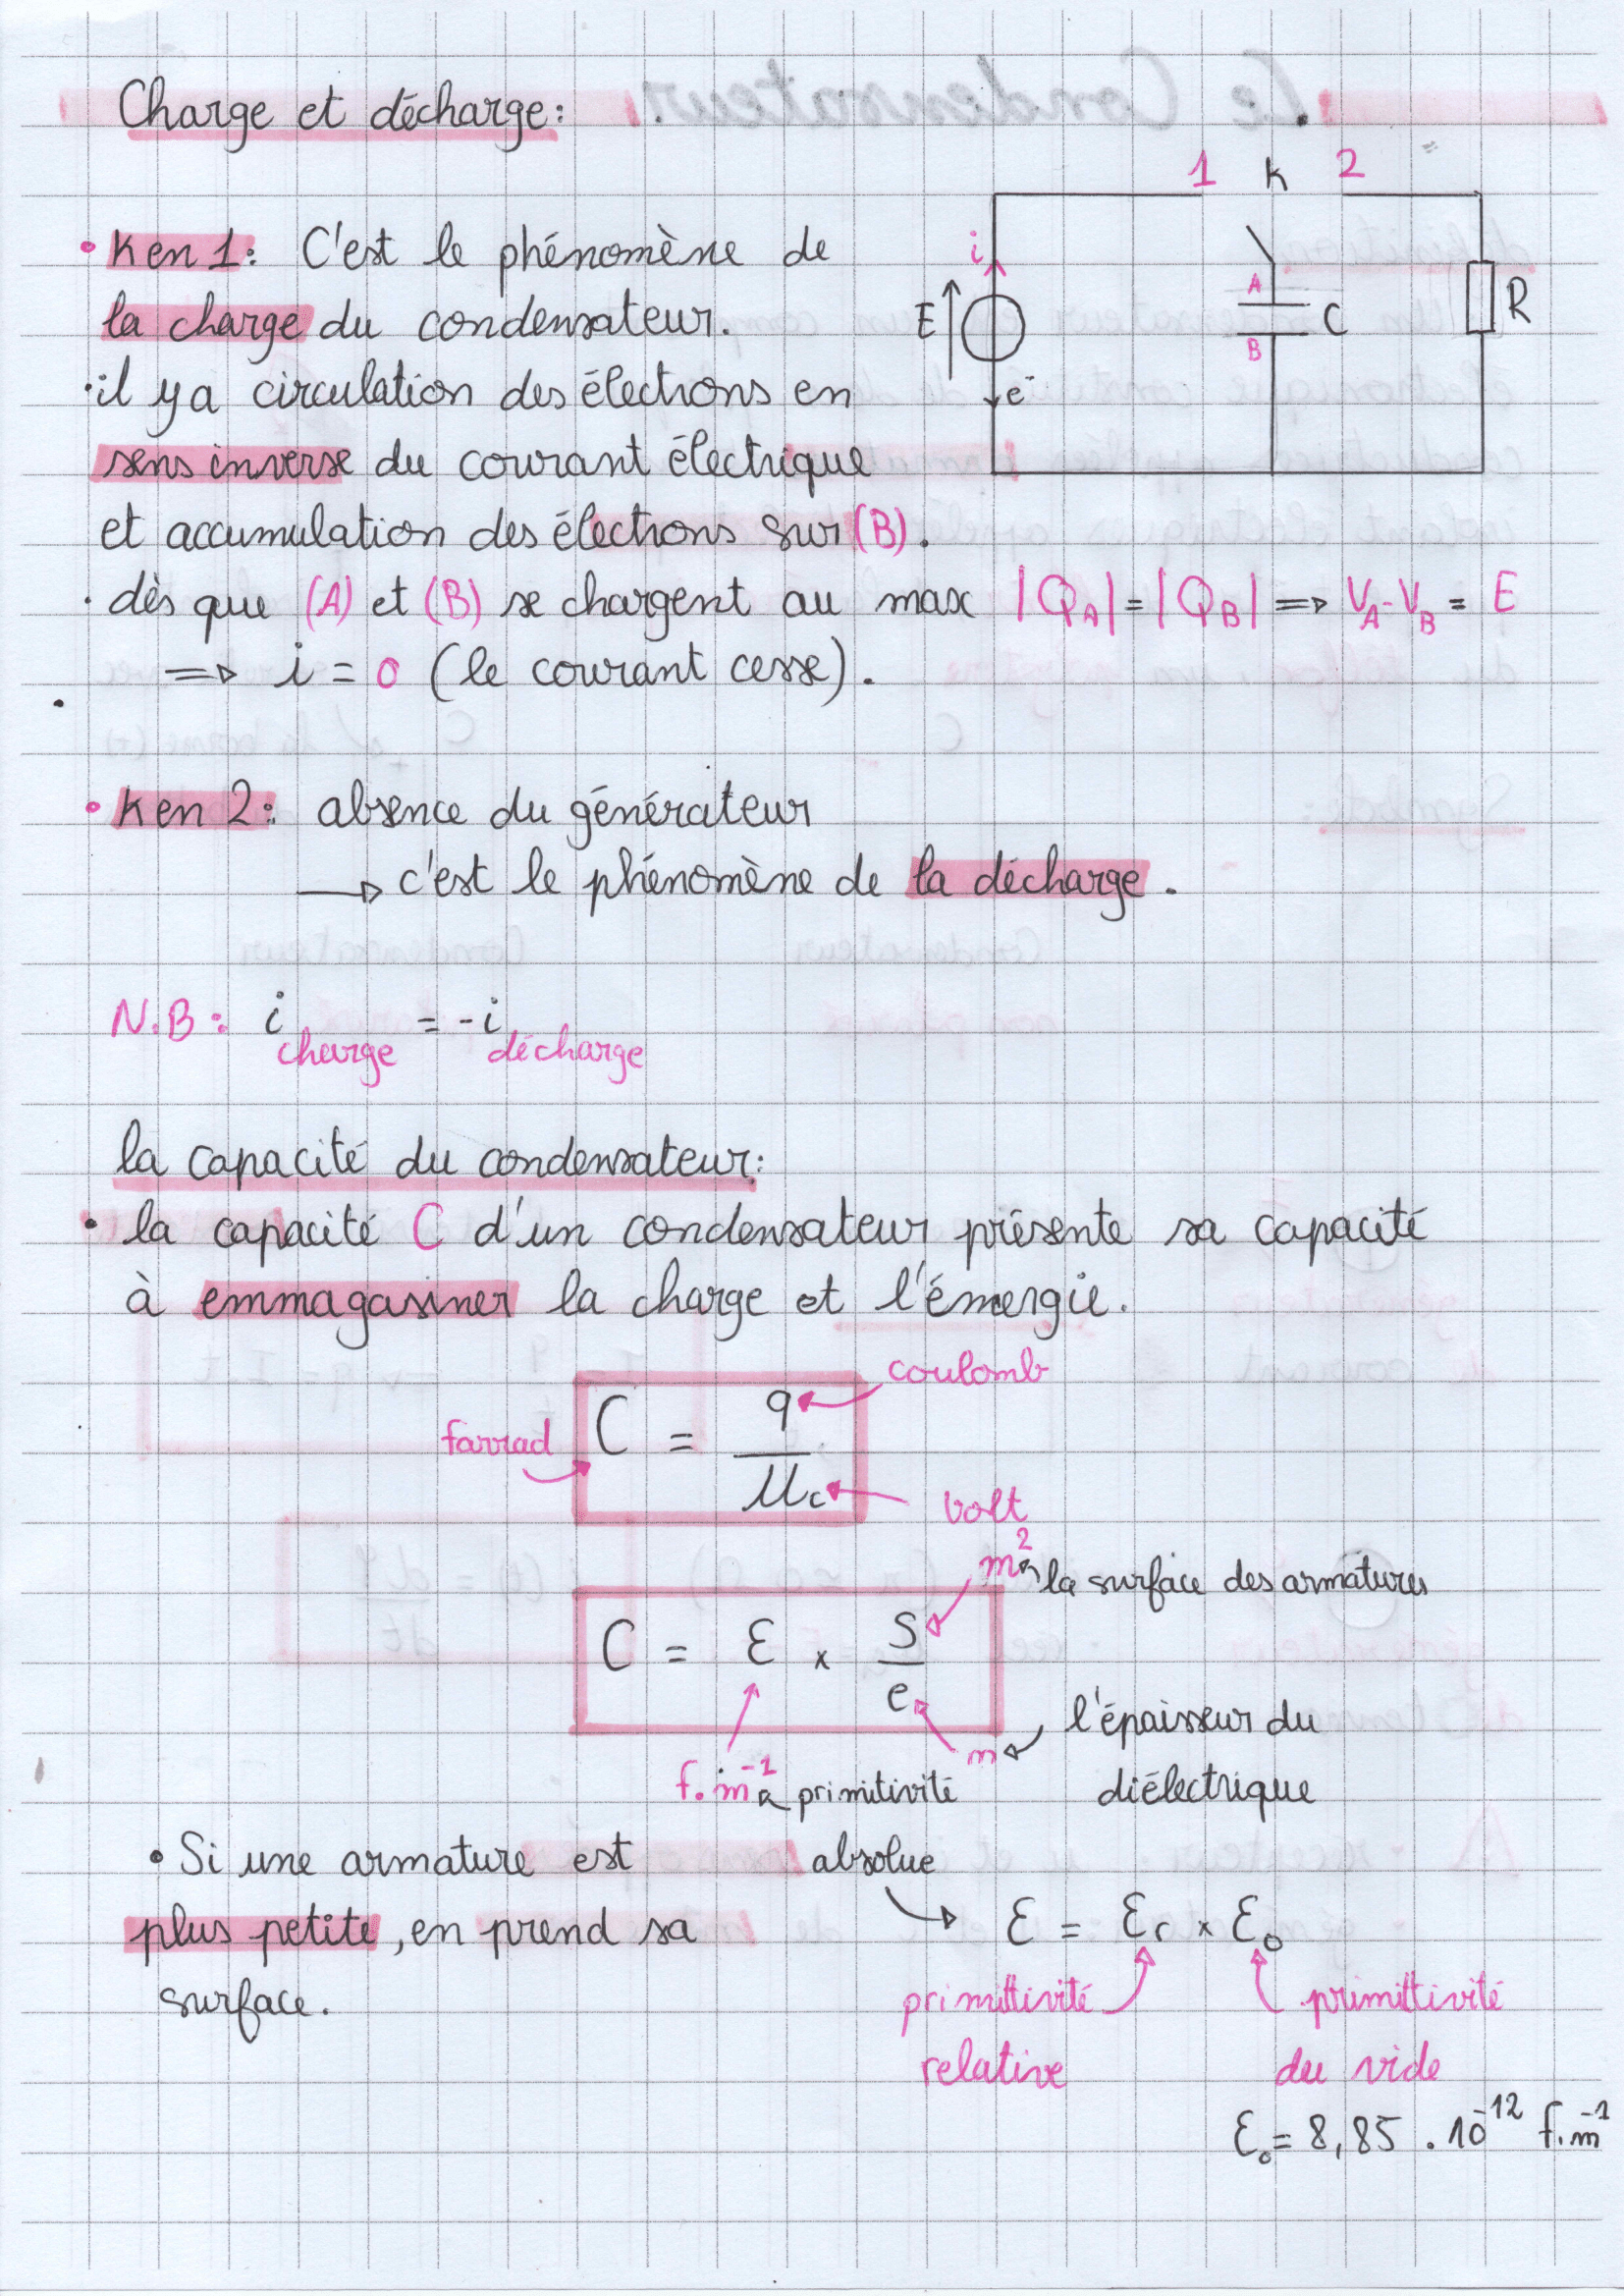 Charge et décharge:
1 K 2
i
E
e⁻
A
B
C
R
• K en 1: C'est le phénomène de
la charge du condensateur.
• il y a circulation des électrons en
sens inverse du courant électrique
et accumulation des électrons sur (B).
• dès que (A) et (B) se chargent au max |Q_A| = |Q_B| ⇒ V_A - V_B = E
⇒ i = 0 (le courant cesse).
• K en 2: absence du générateur
→ c'est le phénomène de la décharge.
N.B: i charge = - i décharge
la capacité du condensateur:
• la capacité C d'un condensateur présente sa capacité
à emmagasiner la charge et l'émergie.
coulomb
farrad
C = q / U_c
volt
m² la surface des armatures
C = ε × S / e
m l'épaisseur du
diélectrique
f.m⁻¹ primitivité
absolue
• Si une armature est
plus petite, en prend sa
surface.
ε = ε_r × ε_0
primittivité
relative
primittivité
du vide
ε_0 = 8,85 . 10⁻¹² f.m⁻¹